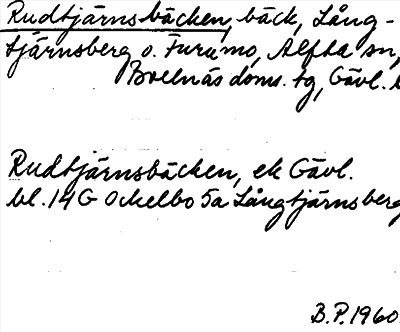 Rudtjärnsbäcken, bäck, Lång-
tjärnsberg o. Furumo, Alfta sn,
Bollnäs doms. tg, Gävl. l
Rudtjärnsbäcken, ek Gävl.
bl. 14G Ockelbo 5a Långtjärnsberg
B.P. 1960